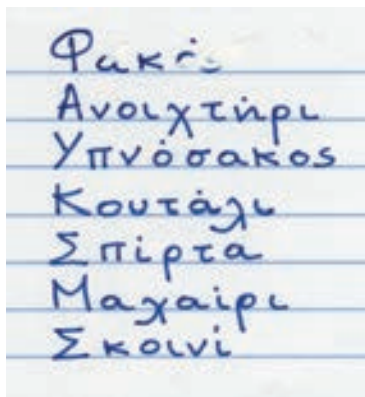 Ανοιχτήρι
Υπνόσακος
Κουτάλι
Σπίρτα
Μαχαίρι
Σκοινί